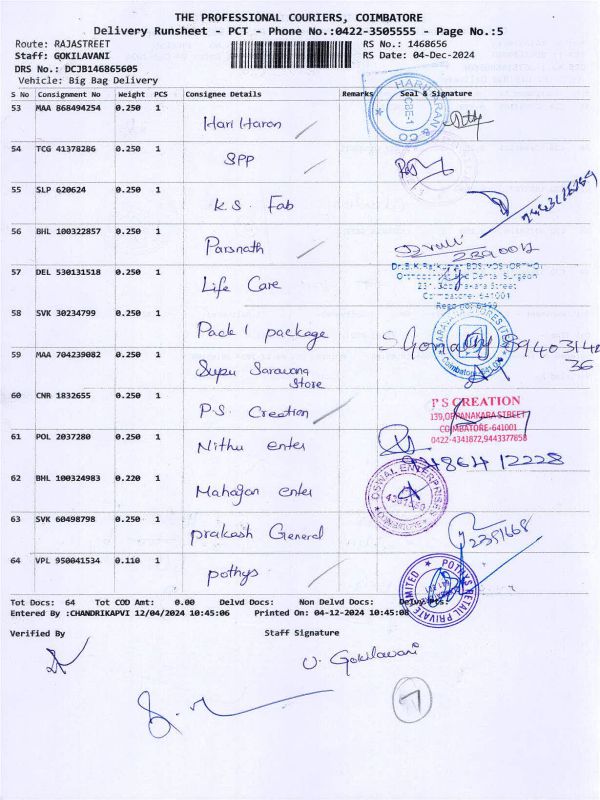 THE PROFESSIONAL COURIERS, COIMBATORE
Delivery Runsheet - PCT - Phone No.:0422-3505555 - Page No.:5
Route: RAJASTREET RS No.: 1468656
Staff: GOKILAVANI RS Date: 04-Dec-2024
DRS No.: DCJB146865605
Vehicle: Big Bag Delivery
S No Consignment No Weight PCS Consignee Details Remarks Seal & Signature
53 MAA 868494254 0.250 1 Hari Haran
HARIHARAN & CO
54 TCG 41378286 0.250 1 SPP
55 SLP 620624 0.250 1 K.S. Fab
56 BHL 100322857 0.250 1 Parsnath
57 DEL 530131518 0.250 1 Life Care
Coimbatore- 641001
58 SVK 30234799 0.250 1 Pack 1 package
59 MAA 704239082 0.250 1 Supu Saravana
Store
60 CNR 1832655 0.250 1 P.S. Creation
P S CREATION
139, OPPANAKARA STREET
COIMBATORE-641001
0422-4341872,9443377858
61 POL 2037280 0.250 1 Nithu enter
62 BHL 100324983 0.220 1 Mahajan enter
OSWAL ENTERPRISES
63 SVK 60498798 0.250 1 prakash General
64 VPL 950041534 0.110 1 pothys
POTHYS RETAIL PRIVATE LIMITED
Tot Docs: 64 Tot COD Amt: 0.00 Delvd Docs: Non Delvd Docs:
Entered By :CHANDRIKAPVI 12/04/2024 10:45:06 Printed On: 04-12-2024 10:45:08
Verified By Staff Signature
U. Gokilavani
7